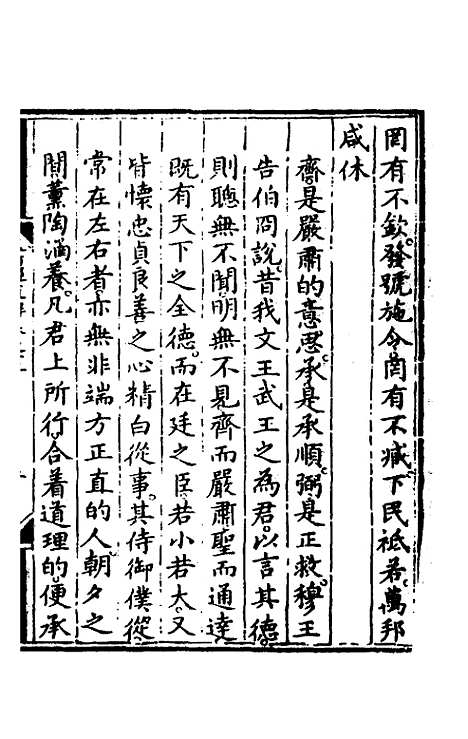 罔有不欽發號施令罔有不臧下民祗若萬邦
咸休
齊是嚴肅的意思承是承順弼是正救穆王
告伯冏說昔我文王武王之為君以言其德
則聰無不聞明無不見齊而嚴肅聖而通達
既有天下之全德而在廷之臣若小若大又
皆懷忠貞良善之心精白從事其侍御僕從
常在左右者亦無非端方正直的人朝夕之
間薰陶涵養凡君上所行合着道理的便承